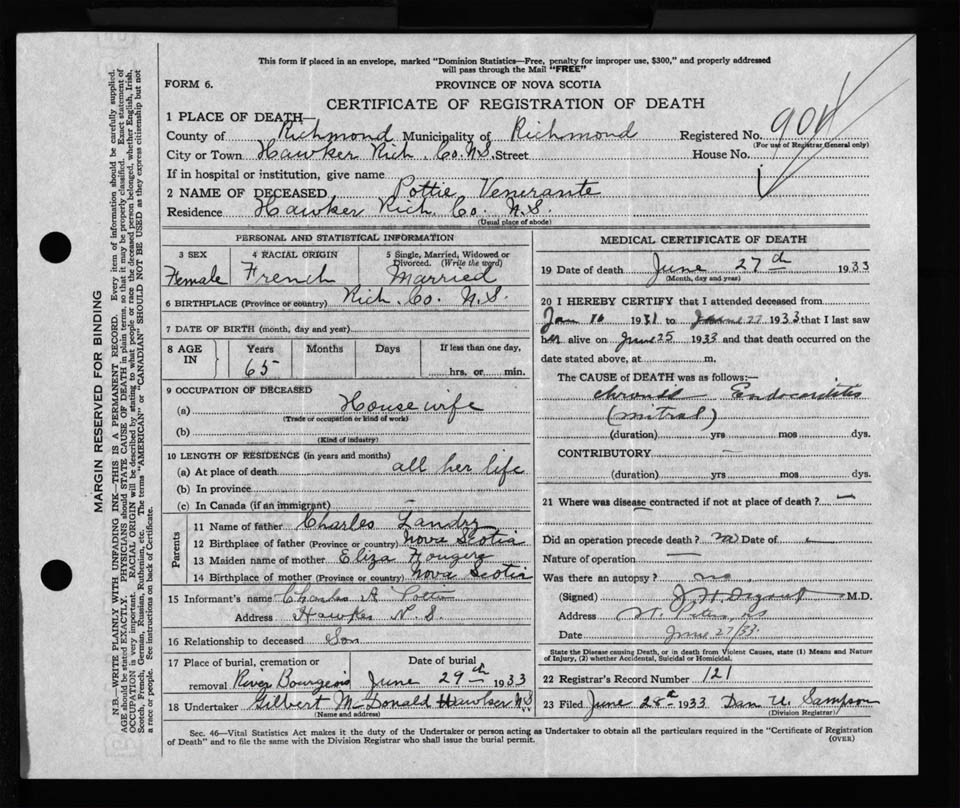 This form if placed in an envelope, marked "Dominion Statistics—Free, penalty for improper use, $300," and properly addressed
will pass through the Mail "FREE"
FORM 6. PROVINCE OF NOVA SCOTIA
CERTIFICATE OF REGISTRATION OF DEATH
1 PLACE OF DEATH—
County of Richmond Municipality of Richmond Registered No. 901
(For use of Registrar General only)
City or Town Hawker Rich. Co. N.S. Street House No.
If in hospital or institution, give name
2 NAME OF DECEASED Pottie Venerante
Residence Hawker Rich Co. N.S.
(Usual place of abode)
PERSONAL AND STATISTICAL INFORMATION
3 SEX 4 RACIAL ORIGIN 5 Single, Married, Widowed or Divorced. (Write the word)
Female French Married
6 BIRTHPLACE (Province or country) Rich. Co. N.S.
7 DATE OF BIRTH (month, day and year)
8 AGE IN Years Months Days If less than one day,
65 hrs. or min.
9 OCCUPATION OF DECEASED
(a) House wife
(Trade or occupation or kind of work)
(b)
(Kind of industry)
10 LENGTH OF RESIDENCE (in years and months)
(a) At place of death all her life
(b) In province
(c) In Canada (if an immigrant) –
Parents
11 Name of father Charles Landry
12 Birthplace of father (Province or country) Nova Scotia
13 Maiden name of mother Eliza Fougere
14 Birthplace of mother (Province or country) Nova Scotia
15 Informant's name Charles A Pottie
Address Hawker N.S.
16 Relationship to deceased Son
17 Place of burial, cremation or removal River Bourgeois Date of burial June 29th 1933
18 Undertaker Gilbert McDonald Hawker N.S
(Name and address)
MEDICAL CERTIFICATE OF DEATH
19 Date of death June 27th 1933
(Month, day and year)
20 I HEREBY CERTIFY that I attended deceased from
Jan 16 1931 to June 27 1933 that I last saw
her alive on June 25 1933 and that death occurred on the
date stated above, at m.
The CAUSE of DEATH was as follows:—
chronic Endocarditis
(mitral)
(duration) yrs mos dys.
CONTRIBUTORY –
(duration) yrs mos dys.
21 Where was disease contracted if not at place of death? –
Did an operation precede death? no Date of –
Nature of operation –
Was there an autopsy? no
(Signed) M.D.
Address St. Peters, NS
Date June 27/33.
State the Disease causing Death, or in death from Violent Causes, state (1) Means and Nature
of Injury, (2) whether Accidental, Suicidal or Homicidal.
22 Registrar's Record Number 121
23 Filed June 28th 1933 Dan U. Sampson
(Division Registrar)
Sec. 46—Vital Statistics Act makes it the duty of the Undertaker or person acting as Undertaker to obtain all the particulars required in the "Certificate of Registration
of Death" and to file the same with the Division Registrar who shall issue the burial permit.
(OVER)
MARGIN RESERVED FOR BINDING
N.B.—WRITE PLAINLY WITH UNFADING INK—THIS IS A PERMANENT RECORD. Every item of information should be carefully supplied.
AGE should be stated EXACTLY. PHYSICIANS should STATE CAUSE OF DEATH in plain terms, so that it may be properly classified. Exact statement of
OCCUPATION is very important. RACIAL ORIGIN will be described by stating to what people or race the deceased person belonged, whether English, Irish,
Scotch, French, German, Russian, Ruthenian, etc. The terms "AMERICAN" or "CANADIAN" SHOULD NOT BE USED as they express citizenship but not
a race or people. See instructions on back of Certificate.